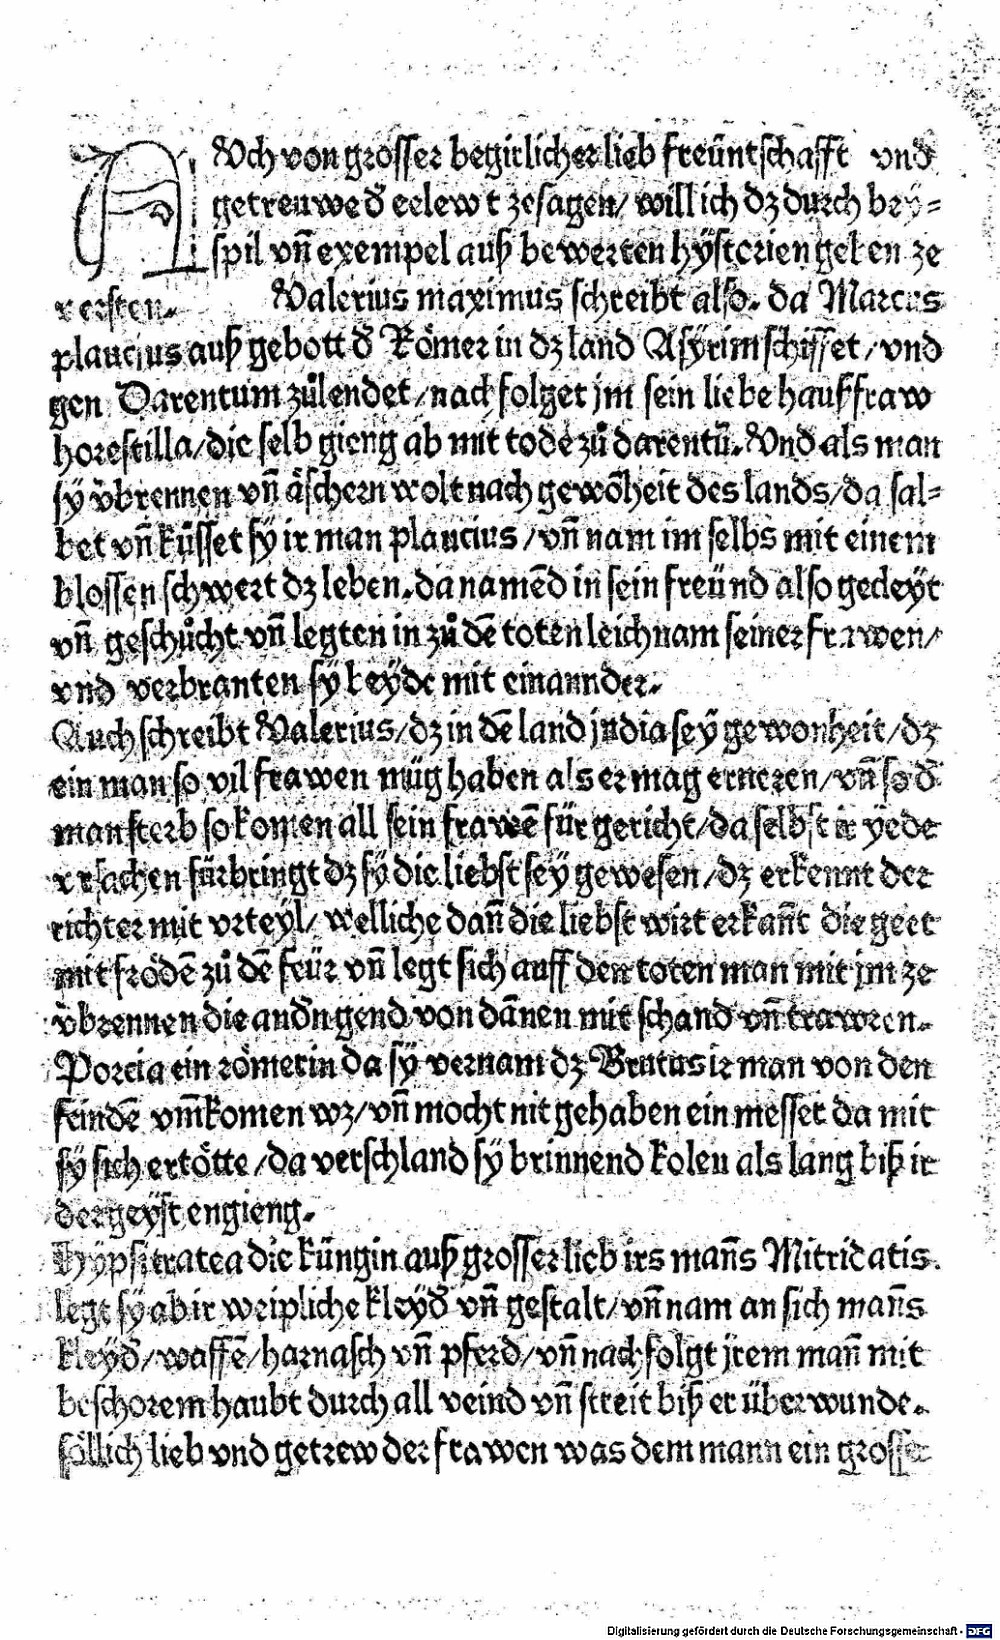 AUch von grosser begirlicher lieb freüntschafft vnd
getreuwe d̕ eelewt zesagen/ will ich dz durch bey⸗
spil vn̄ exempel auß bewerten hÿstorien geben ze
versten. Valerius maximus schreibt also. da Marcus
plaucius auß gebott d̕ Römer in dz land Asÿrim schiffet/ vnd
gen Darentum zůlendet/ nach folget jm sein liebe haußfraw
horestilla/ die selb gieng ab mit tode zů darentū. Vnd als man
sÿ v̈brennen vn̄ äschern wolt nach gewōheit des lands/ da sal⸗
bet vn̄ küsset sÿ ir man plaucius/ vn̄ nam im selbs mit einem
blossen schwert dz leben. da namēd in sein freünd also gecleyt
vn̄ geschůcht vn̄ legten in zů dē toten leichnam seiner frawen/
vnd verbranten sÿ beÿde mit einannder.
Auch schreibt Valerius/ dz in dē land jndia seÿ gewonheit/ dz
ein man so vil frawen müg haben als er mag erneren/ vn̄ so d̕
man sterb so komen all sein frawē für gericht/ da selbst ir yede
vrsachen fürbringt dz sÿ die liebst seÿ gewesen/ dz erkennt der
richter mit vrteyl/ welliche dan̄ die liebst wirt erkan̄t die geet
mit frödē zů dē feür vn̄ legt sich auff den toten man mit jm ze
v̈brennen die and̕n gend von dānen mit schand vn̄ trawren.
Porcia ein römerin da sÿ vernam dz Brutus ir man von den
feindē vm̄komen wz/ vn̄ mocht nit gehaben ein messer da mit
sÿ sich ertötte/ da verschland sÿ brinnend kolen als lang biß ir
der geÿst engieng.
Hÿpsitratea die küngin auß grosser lieb irs man̄s Mitridatis.
legt sÿ ab ir weipliche kleyd̕ vn̄ gestalt/ vn̄ nam an sich man̄s
kleyd̕/ waffē/ harnasch vn̄ pferd/ vn̄ nachfolgt jrem man̄ mit
beschorem haubt durch all veind vn̄ streit biß er überwunde.
söllich lieb vnd getrew der frawen was dem mann ein grosser
Digitalisierung gefördert durch die Deutsche Forschungsgemeinschaft - DFG